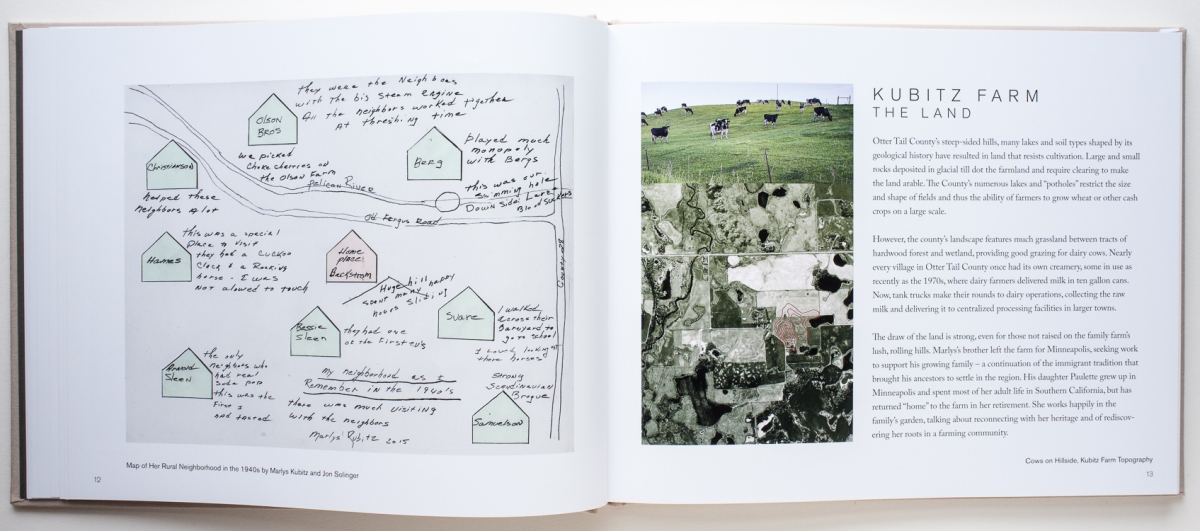 they were the Neighbors
with The big Steam Engine
All the neighbors worked together
At threshing time
OLSON
BRO'S
we picked
Chokecherries on
the Olson Farm
Pelican River
Berg
played much
monopoly
with Bergs
this was our
swimming hole
Down side: Lots
Blood Suckers
Christianson
helped these
Neighbors A lot
Old Fergus Road
this was a special
Place to visit
they had a Cuckoo
Clock & a Rocking
horse - I was
Not allowed to touch
Hames
Home
place
Beckstrom
Huge hill happy
spent many
hours sliding
Bessie
Sleen
they had one
of the First TV's
Svare
I walked
Across their
Barnyard to
go to school
I loved looking at
there horses
County
the only
Neighbors who
had real
Soda pop
this was the
First I
had tasted
Sleen
My neighborhood as I
Remember in the 1940's
there was much visiting
with the neighbors
Marlys Kubitz 2015
Strong
Scandinavian
Brogue
Samuelson
Map of Her Rural Neighborhood in the 1940s by Marlys Kubitz and Jon Solinger
12
KUBITZ FARM
THE LAND
Otter Tail County's steep-sided hills, many lakes and soil types shaped by its
geological history have resulted in land that resists cultivation. Large and small
rocks deposited in glacial till dot the farmland and require clearing to make
the land arable. The County's numerous lakes and "potholes" restrict the size
and shape of fields and thus the ability of farmers to grow wheat or other cash
crops on a large scale.
However, the county's landscape features much grassland between tracts of
hardwood forest and wetland, providing good grazing for dairy cows. Nearly
every village in Otter Tail County once had its own creamery, some in use as
recently as the 1970s, where dairy farmers delivered milk in ten gallon cans.
Now, tank trucks make their rounds to dairy operations, collecting the raw
milk and delivering it to centralized processing facilities in larger towns.
The draw of the land is strong, even for those not raised on the family farm's
lush, rolling hills. Marlys's brother left the farm for Minneapolis, seeking work
to support his growing family – a continuation of the immigrant tradition that
brought his ancestors to settle in the region. His daughter Paulette grew up in
Minneapolis and spent most of her adult life in Southern California, but has
returned "home" to the farm in her retirement. She works happily in the
family's garden, talking about reconnecting with her heritage and of rediscov-
ering her roots in a farming community.
Cows on Hillside, Kubitz Farm Topography
13